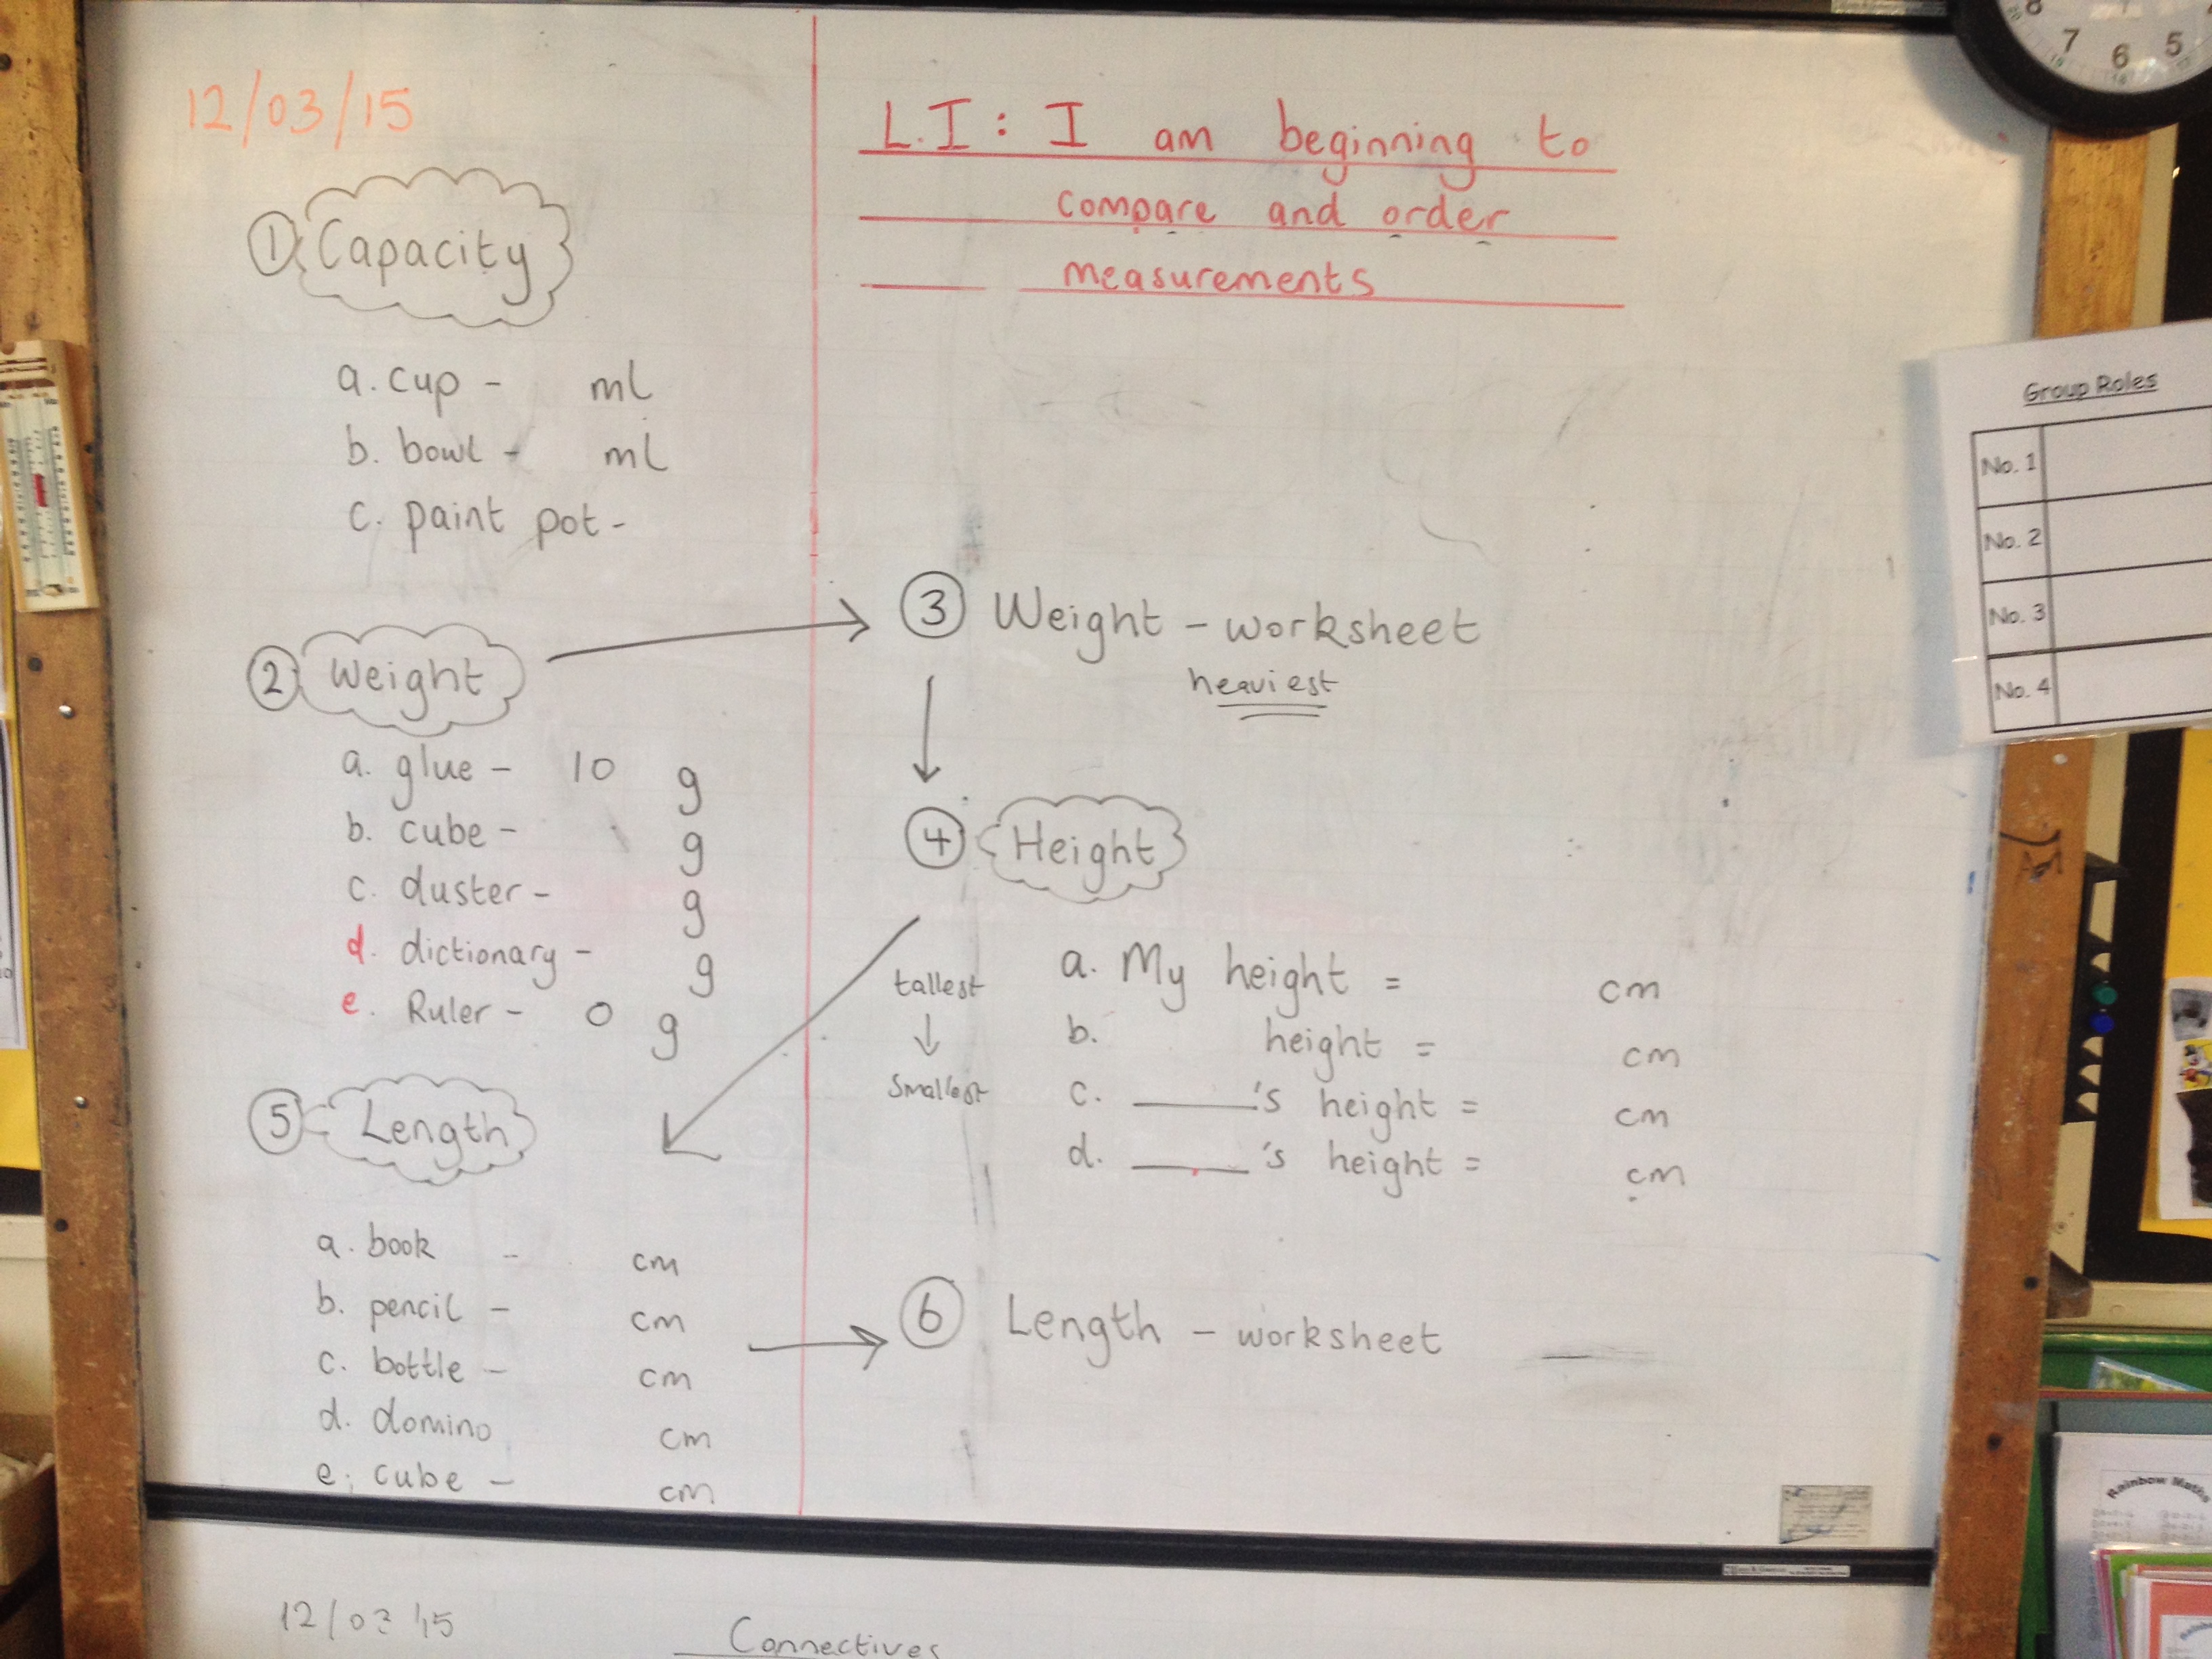 12/03/15
L.I: I am beginning to
compare and order
measurements
① Capacity
a. cup - ml
b. bowl - ml
c. paint pot -
② Weight
a. glue - 10 g
b. cube - g
c. duster - g
d. dictionary - g
e. Ruler - 0 g
③ Weight - worksheet
heaviest
④ Height
tallest
↓
smallest
a. My height = cm
b. height = cm
c. ____'s height = cm
d. ____'s height = cm
⑤ Length
a. book - cm
b. pencil - cm
c. bottle - cm
d. domino cm
e. cube - cm
⑥ Length - worksheet
12/03/15
Connectives
Group Roles
No. 1
No. 2
No. 3
No. 4
8 7 6 5
Rainbow Maths